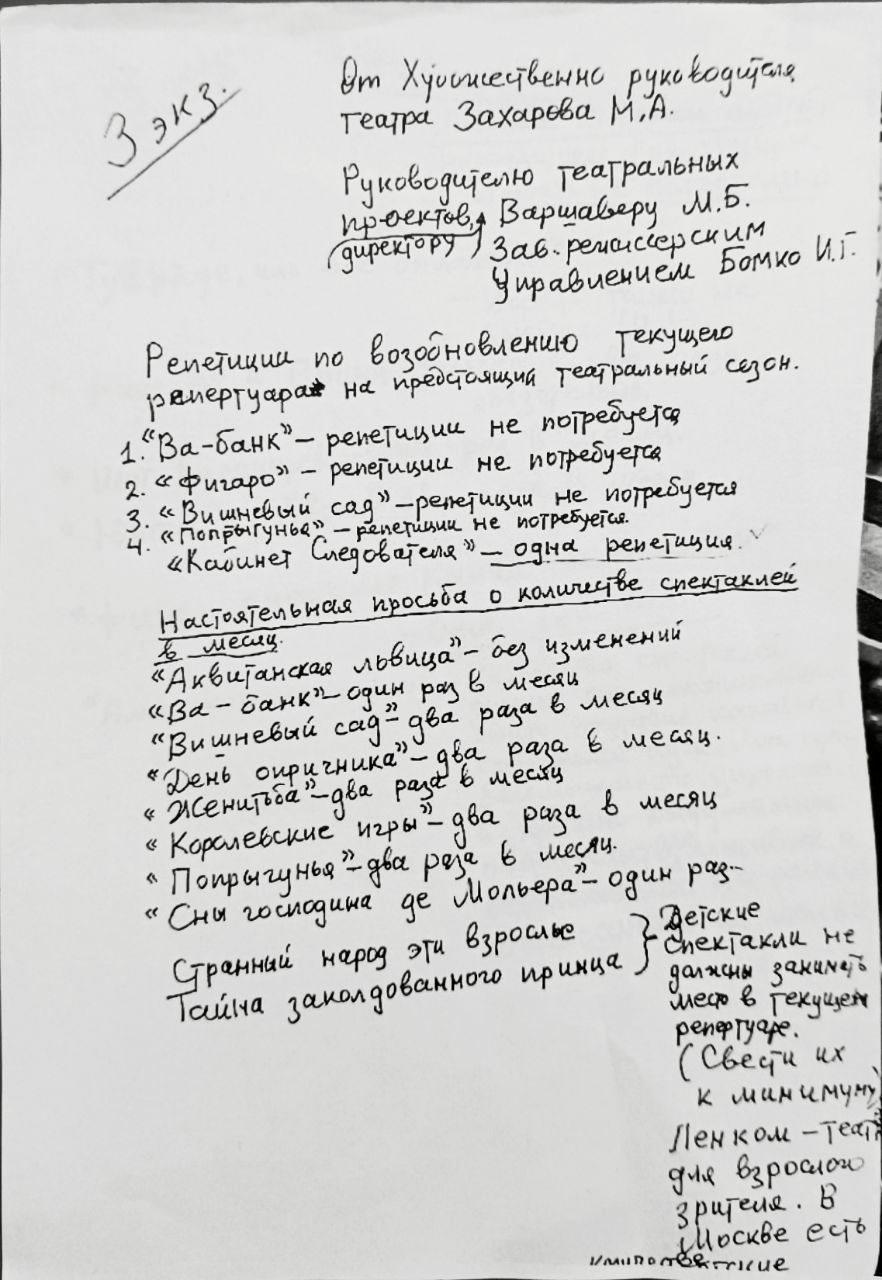 3 экз.
От Художественно руководителя
театра Захарова М.А.
Руководителю театральных
проектов, Варшаверу М.Б.
директору
Зав. режиссерским
Управлением Бомко И.Г.
Репетиции по возобновлению текущего
репертуара на предстоящий театральный сезон.
1. "Ва-банк" – репетиции не потребуется
2. «Фигаро» – репетиции не потребуется
3. «Вишневый сад» – репетиции не потребуется
4. «Попрыгунья» – репетиции не потребуется.
«Кабинет Следователя» – одна репетиция.
Настоятельная просьба о количестве спектаклей
в месяц.
«Аквитанская львица» – без изменений
«Ва-банк» – один раз в месяц
«Вишневый сад» – два раза в месяц
«День опричника» – два раза в месяц.
«Женитьба» – два раза в месяц
«Королевские игры» – два раза в месяц
«Попрыгунья» – два раза в месяц.
«Сны господина де Мольера» – один раз –
Странный народ эти взрослые
Тайна заколдованного принца
Детские
спектакли не
должны занимать
место в текущем
репертуаре.
(Свести их
к минимуму)
Ленком – театр
для взрослого
зрителя. В
Москве есть